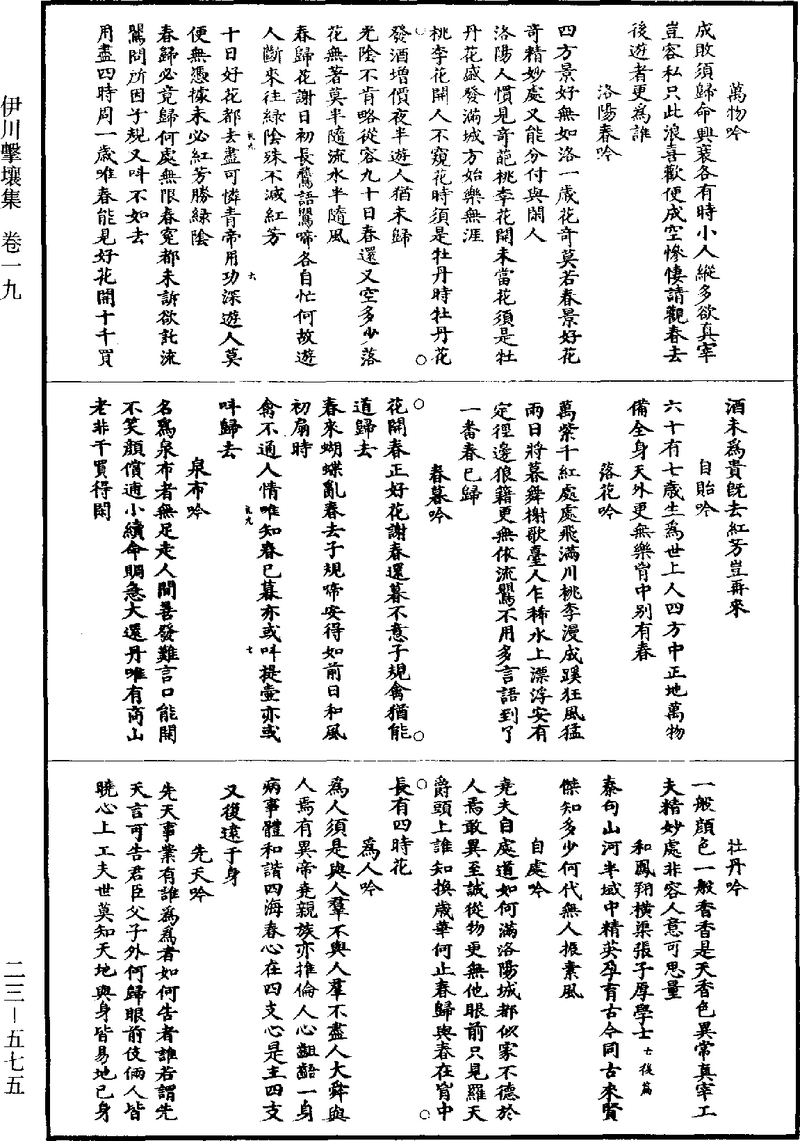 伊川擊壤集 卷一九
二三—五七五
萬物吟
成敗須歸命興衰各有時小人縱多欲真宰
豈容私只此浪喜歡便成空慘悽請觀春去
後遊者更為誰
洛陽春吟
四方景好無如洛一歲花奇莫若春景好花
奇精妙處又能分付與閑人
洛陽人慣見奇葩桃李花開未當花須是牡
丹花盛發滿城方始樂無涯
桃李花開人不窺花時須是牡丹時牡丹花
發酒增價夜半遊人猶未歸
光陰不肯略從容九十日春還又空多少落
花無著莫半隨流水半隨風
春歸花謝日初長鷰語鸎啼各自忙何故遊
人斷來往綠陰殊不減紅芳
十日好花都去盡可憐青帝用功深遊人莫
便無憑據未必紅芳勝綠陰
春歸必竟歸何處無限春寃都未訴欲託流
鸎問所因子規又叫不如去
用盡四時周一歲唯春能見好花開十千買
酒未為貴旣去紅芳豈再來
自貽吟
六十有七歲生為世上人四方中正地萬物
備全身天外更無樂胷中別有春
落花吟
萬紫千紅處處飛滿川桃李漫成蹊狂風猛
雨日將暮舞榭歌臺人乍稀水上漂浮安有
定徑邊狼籍更無依流鸎不用多言語到了
一番春已歸
春暮吟
花開春正好花謝春還暮不意子規禽猶能
道歸去
春來蝴蝶亂春去子規啼安得如前日和風
初扇時
禽不通人情唯知春已暮亦或叫提壷亦或
叫歸去
泉布吟
名為泉布者無足走人間善發難言口能開
不笑顏償逋小續命賙急大還丹唯有商山
老非干買得閑
牡丹吟
一般顏色一般香香是天香色異常真宰工
夫精妙處非容人意可思量
和鳳翔橫渠張子厚學士 亡後篇
秦甸山河半域中精英孕育古今同古來賢
傑知多少何代無人振素風
自處吟
堯夫自處道如何滿洛陽城都似家不德於
人焉敢異至誠從物更無他眼前只見羅天
爵頭上誰知換歲華何止春歸與春在胷中
長有四時花
為人吟
為人須是與人羣不與人羣不盡人大舜與
人焉有異帝堯親族亦推倫人心齟齬一身
病事體和諧四海春心在四支心是主四支
又復遠于身
先天吟
先天事業有誰為為者如何告者誰若謂先
天言可告君臣父子外何歸眼前伎倆人皆
曉心上工夫世莫知天地與身皆易地已身